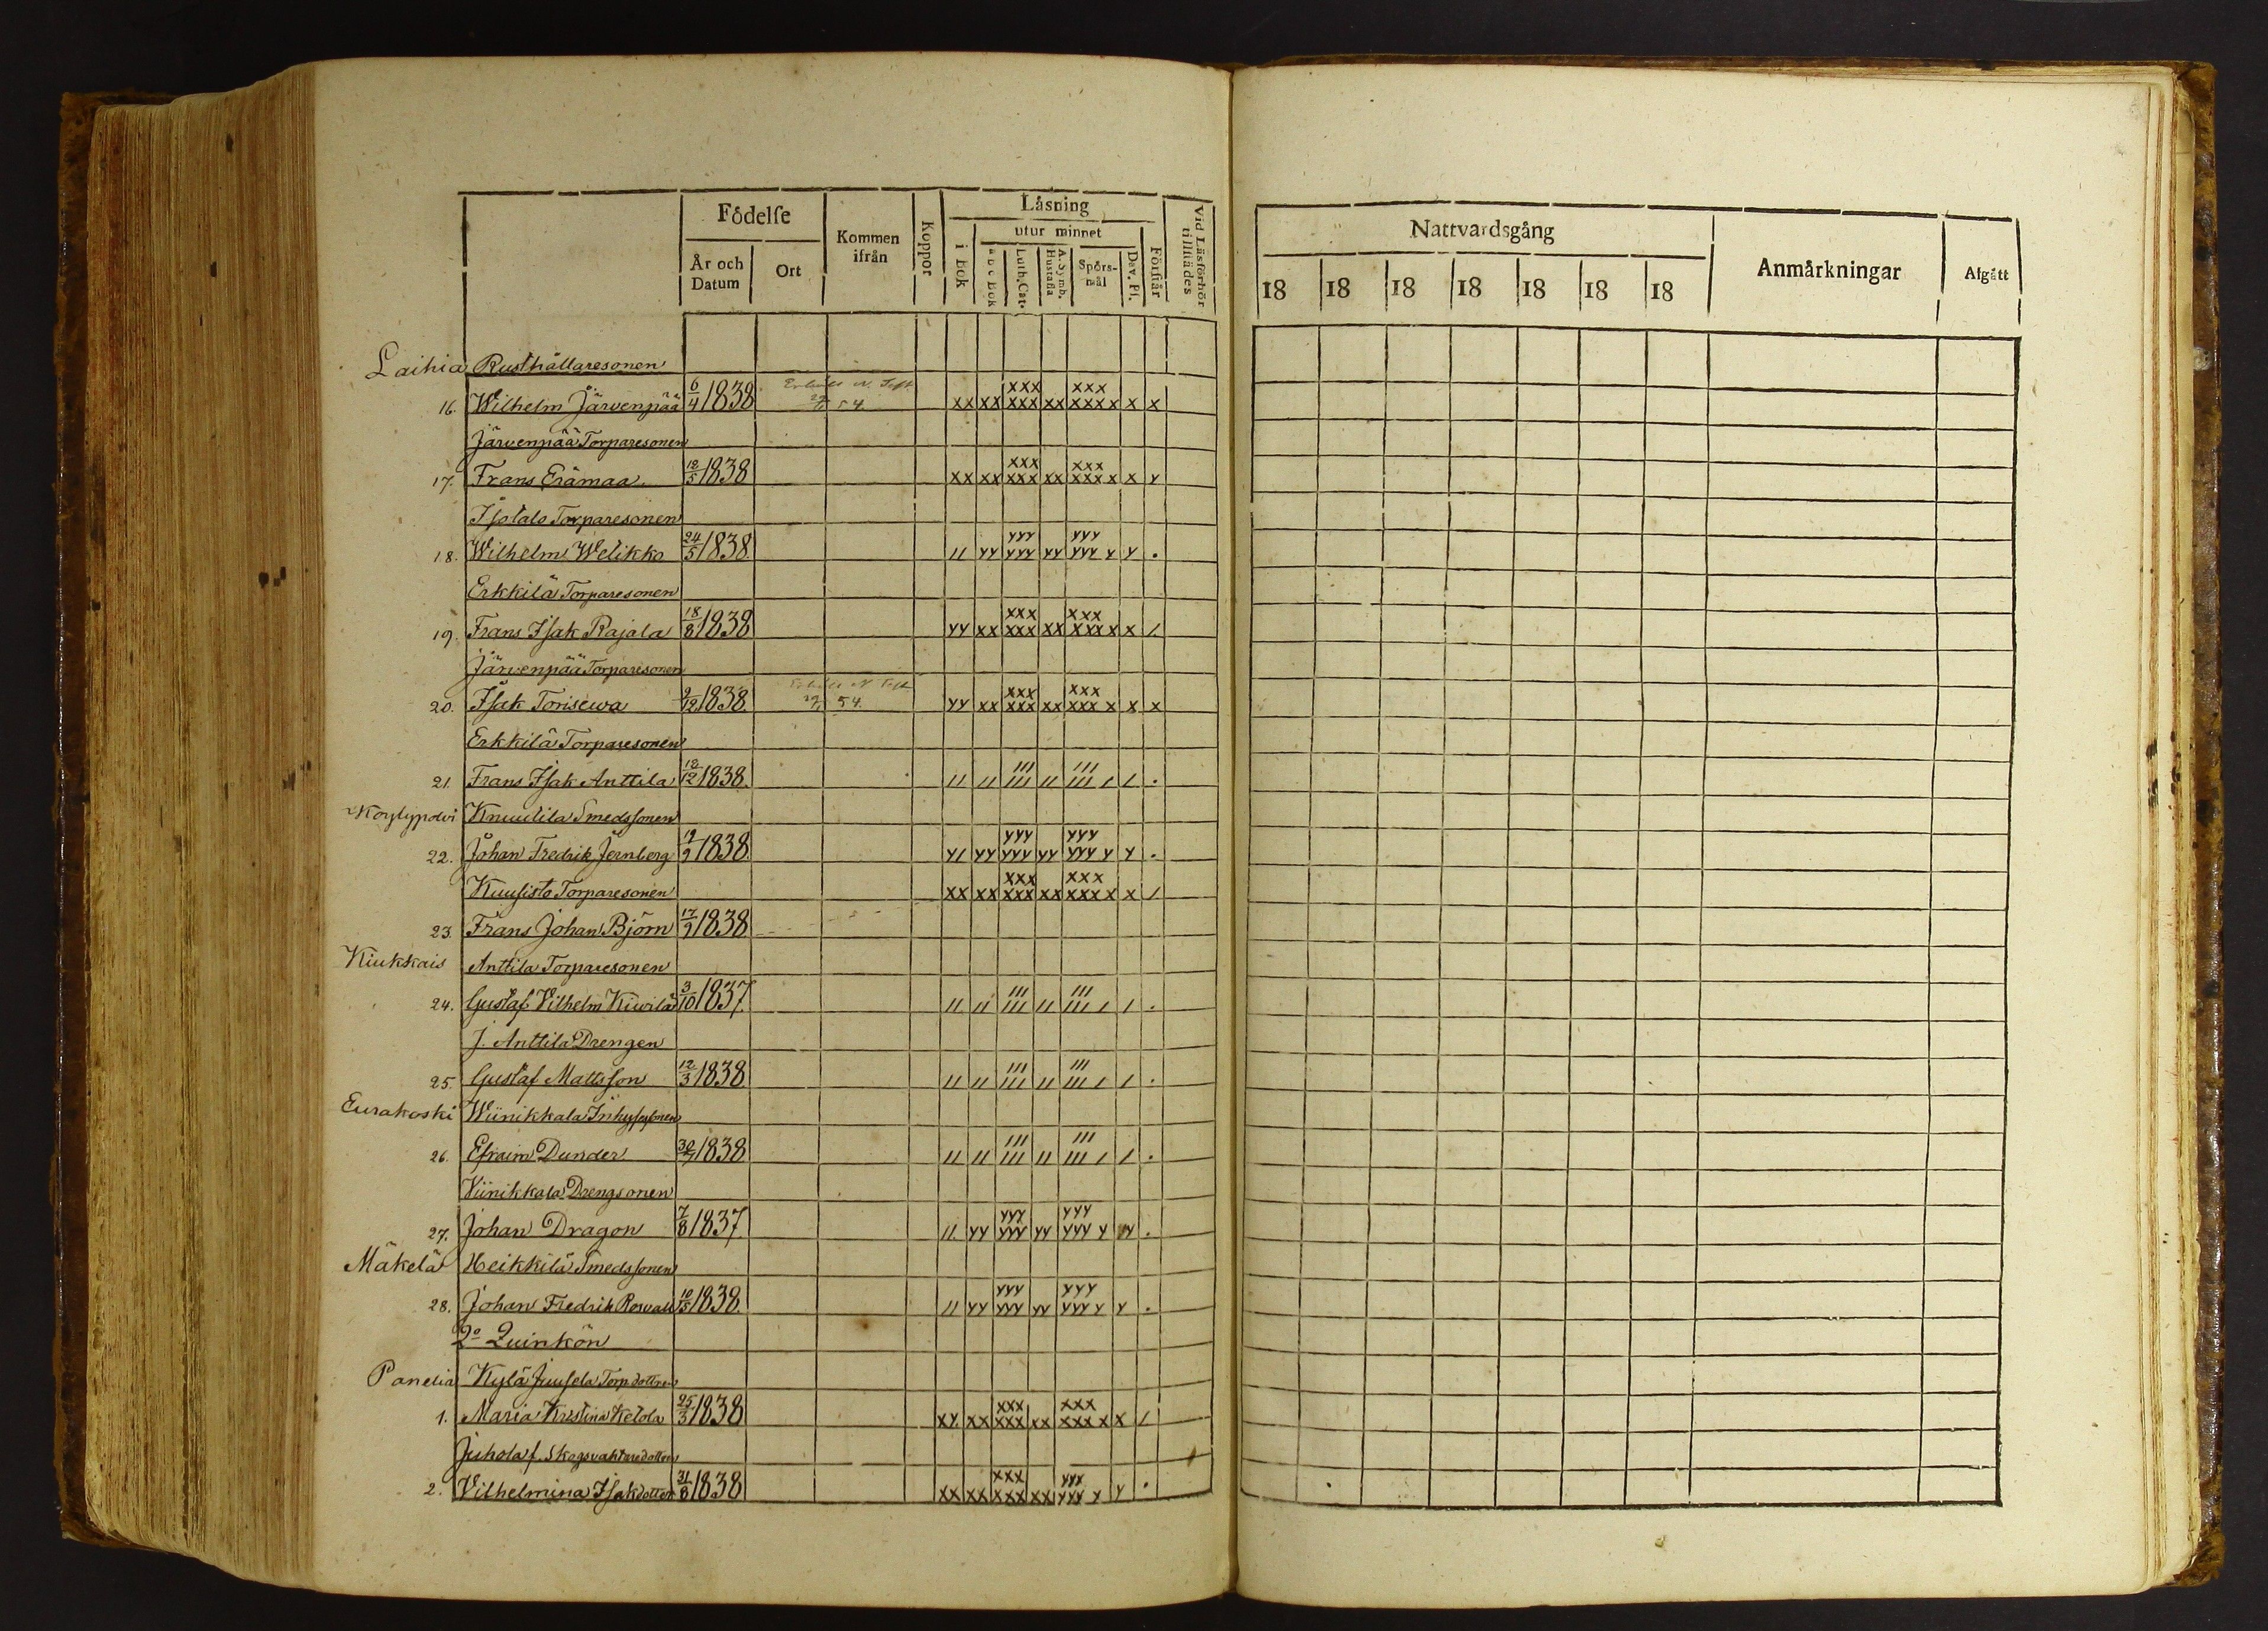 Födelse
År och Datum
Ort
Kommen ifrån
Koppor
Läsning
i Bok
utur minnet
a b c Bok
Luth. Cat.
A. Symb. Hustafla
Spörsmål
Dav. Ps.
Förstår
Vid Läsförhör tillstädes
Nattvardsgång
18 18 18 18 18 18 18
Anmärkningar
Afgått
Laihia Rusthållaresonen
16. Wilhelm Järvenpää 6/4 1838 xx xx xxx xxx xx xxx xxx x x x
54.
Järvenpää Torparesonen
17. Frans Erämaa 12/5 1838 xx xx xxx xxx xx xxx xxx x x y
Isotalo Torparesonen
18. Wilhelm Welikko 24/5 1838. 11 yy yyy yyy yy yyy yyy y y .
Erkkilä Torparesonen
19. Frans Isak Rajala 18/8 1838 yy xx xxx xxx xx xxx xxx x x /
Järvenpää Torparesonen
20. Isak Torisewa 9/12 1838. 54. yy xx xxx xxx xx xxx xxx x x x
Erkkilä Torparesonen
21. Frans Isak Anttila 12/12 1838. 11 11 111 111 11 111 111 1 1 .
Köylypolvi Knuutila Smedssonen
22. Johan Fredrik Jernberg 19/9 1838. y1 yy yyy yyy yy yyy yyy y y .
Kuusisto Torparesonen xx xx xxx xxx xx xxx xxx x x /
23. Frans Johan Björn 17/9 1838
Kiukkais Anttila Torparesonen
24. Gustaf Vilhelm Kiwilä 3/10 1837. 11 11 111 111 11 111 111 1 1 .
J. Anttila Drengen
25. Gustaf Mattsson 12/3 1838 11 11 111 111 11 111 111 1 1 .
Eurakoski Wiinikkala Inhysessonen
26. Efraim Dunder 30/7 1838 11 11 111 111 11 111 111 1 1 .
Viinikkala Drengsonen
27. Johan Dragon 7/8 1837. 11 yy yyy yyy yy yyy yyy y y .
Mäkelä Heikkilä Smedssonen
28. Johan Fredrik Rosvall 10/5 1838. 11 yy yyy yyy yy yyy yyy y y .
2o Quinkön
Panelia Kylä Juusela Torp.dottren
1. Maria Kristina Ketola 25/3 1838 xy xx xxx xxx xx xxx xxx x x /
Juhola f. Skogsvaktaredottren
2. Vilhelmina Isakdotter 31/8 1838 xx xx xxx xxx xx yyy yyy y y .